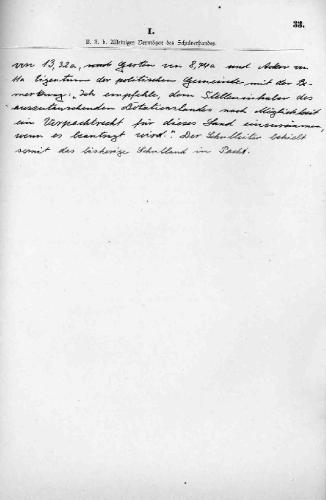 33.
I.
B. I. b. Alleiniges Vermögen des Schulverbandes.
von 13,32 a, und Garten von 8,74 a und Acker von
Ha Eigentum der politischen Gemeinde mit der Be-
merkung: „Ich empfehle, dem Stelleninhaber des
auszutauschenden Dotationslandes nach Möglichkeit
ein Vorpachtrecht für dieses Land einzuräumen,
wenn es beantragt wird.“ Der Schulleiter behielt
somit das bisherige Schulland in Pacht.